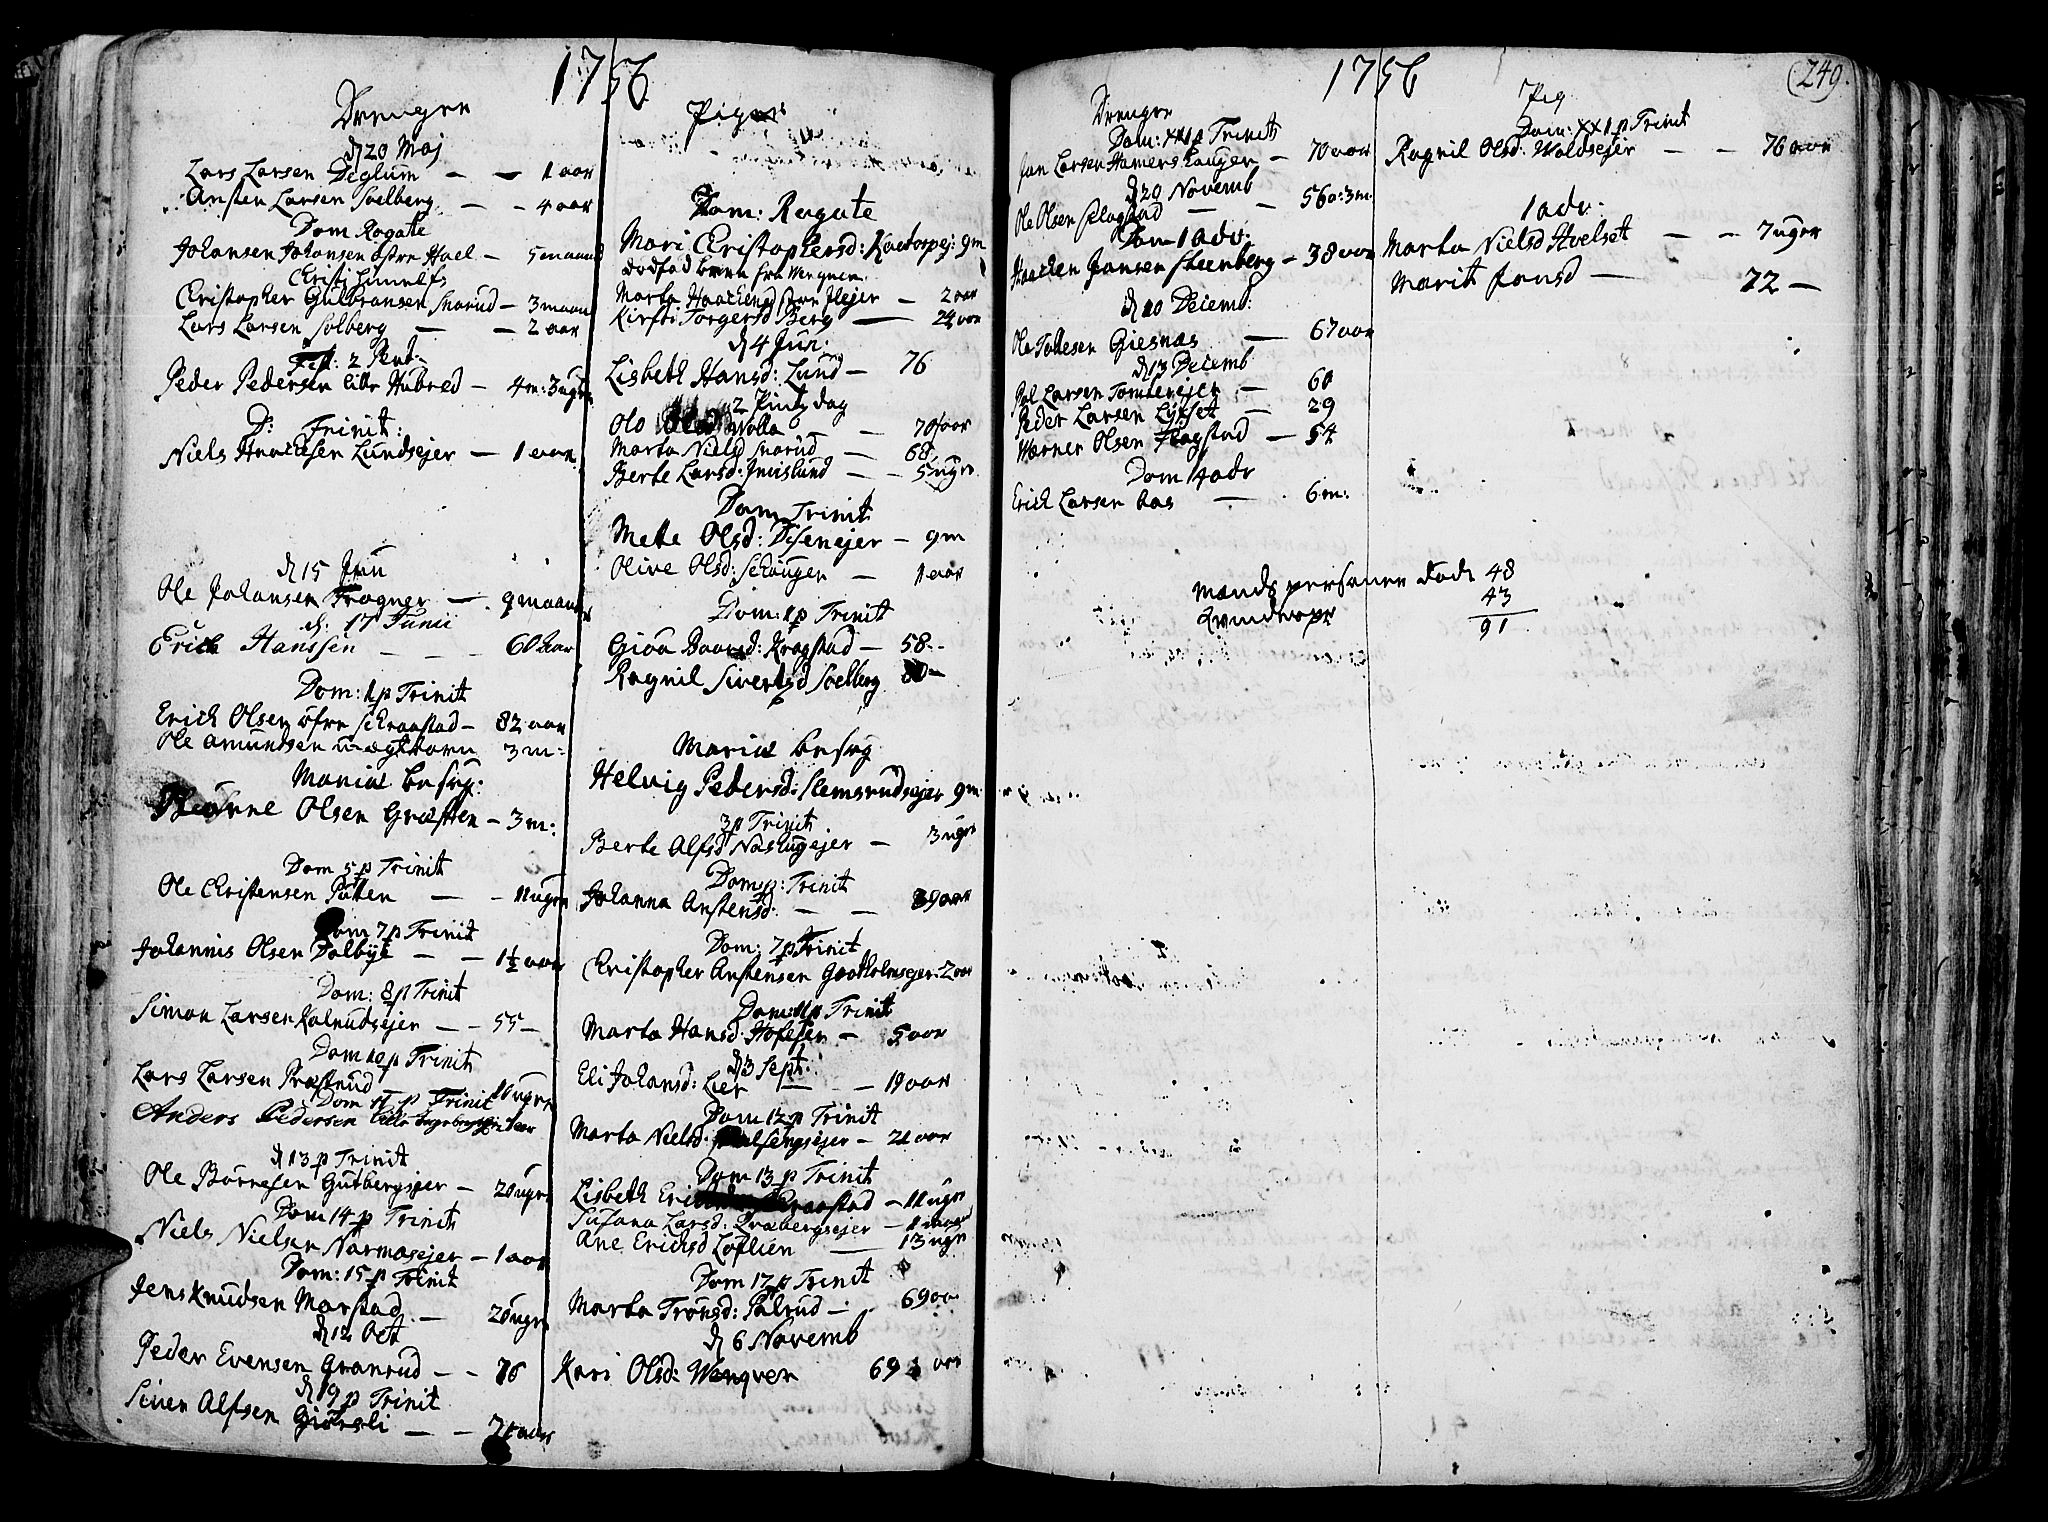 1756
Drenger
d 20 Maj
Lars Larsen Diglum — — 1 aar
Ansten Larsen Soelberg — — 4 aar
Dom Rogate
Johansen Johansen østre Hoel — 5 maan
Christi himmelfs
Christopher Gulbransen Snarud — 3 maan
Lars Larsen Solberg — — 2 aar
Fest: 2 Pent:
Peder Pedersen lille Hubred — 4 m: 3 ugr
D: Trinit:
Niels Haachsen Lundsejer — 1 aar
d 15 Jun
Ole Johansen Frogner — 9 maan
d. 17 Junii
Erich Hanssen — — — 60 aar
Dom: 1 p Trinit
Erich Olsen øfre Schraastad — 82 aar
Ole Amundsen uægtebarn 3 m:
Mariæ besøg:
Biørne Olsen Græsten — 3 m:
Dom 5 p Trinit
Ole Christensen Påtten — — 11 ugr
Dom 7 p Trinit
Johannis Olsen Dalbye — — 1½ aar
Dom: 8 p Trinit
Simon Larsen Kalrudsejer — — 55 —
Dom 10 p Trinit
Lars Larsen Præstrud — 16 ugr
Dom 11 p Trinit
Anders Pedersen lille
d 13 p Trinit
Ole Børresen Gutbergsejer — 20 ugr
Dom 14 p Trinit
Niels Nielsen Narmosejer — 1 aar
Dom: 15 p Trinit
Jens Knudsen Morstad — 20 ugr
d 12 Oct
Peder Evensen Granrud — — 76
d 19 p Trinit
Siver Alfsen Giørsli — — 71 aar
Piger
Dom: Rogate
Mari Christophersd: Kaatorpej: 9 m
dødfød barn fra Wengner
Marta Haachensd store Ilejer — 2 aar
Kirsti Torgersd Berg — 24 aar
d 4 Jun:
Lisbeth Hansd: Lund — 76
2 Pintz dag
Olo Wolla — — 70 aar
Marta Nielsd Snarud — 68
Berte Larsd: Imislund — — 5 ugr
Dom Trinit
Mette Olsd: Disenejer — 9 m
Olive Olsd: Schouger — 1 aar
Dom: 1 p Trinit
Gioa Daarsd: Kragstad — 58 —
Ragnil Sivertsd Soelberg 80 —
Mariæ besøg
Helvig Pedersd: Stemsrudsejer 9 m
3 p Trinit
Berte Alfsd Naslugejer — 3 ugr
Dom p: Trinit
Johanna Anstensd: — — 89 aar
Dom: 7 p Trinit
Christopher Anstensen Grotholmsejer: 2 aar
Dom: 11 p Trinit
Marta Hansd: Hofesen — 5 aar
d 3 Sept:
Eli Johansd: Lier — — 19 aar
Dom 12 p Trinit
Marta Nielsd: — 21 aar
Dom 13 p Trinit
Lisbeth Schraastad — 11 ugr
Susana Larsd: Præbergsejer — 1 maan
Ane Erichsd Løflien — 13 ugr
Dom 17 p Trinit
Marta Trønsd: Pålrud — 69 aar
d 6 Novemb
Kari Olsd: Wengver 69 aar
1756
249.
Drenger
Dom: XXI p Trinit
Jon Larsen Hamers Houger — 70 aar
d 20 Novemb
Ole Olsen Flagstad — — 56 a: 3 m.
Dom 1 adv:
Haachen Jansen Steenberg — 38 aar
d 10 Decemb:
Ole Tollesen Giesnæs — 67 aar
d 13 Decemb
Pål Larsen Tomterejer — 60
Peder Larsen Lykset — 29
Warner Olsen Flagstad — 54
Dom 4 adv
Erich Larsen Aas — 6 m:
Pig
Dom: XXI p Trinit
Ragnil Olsd: Woldsejer — — 76 aar
1 adv.
Marta Nielsd Hoelset — — 7 ugr
Marit Jonsd — 22 —
Mands personer døde 48
Qvindkopr 43
91